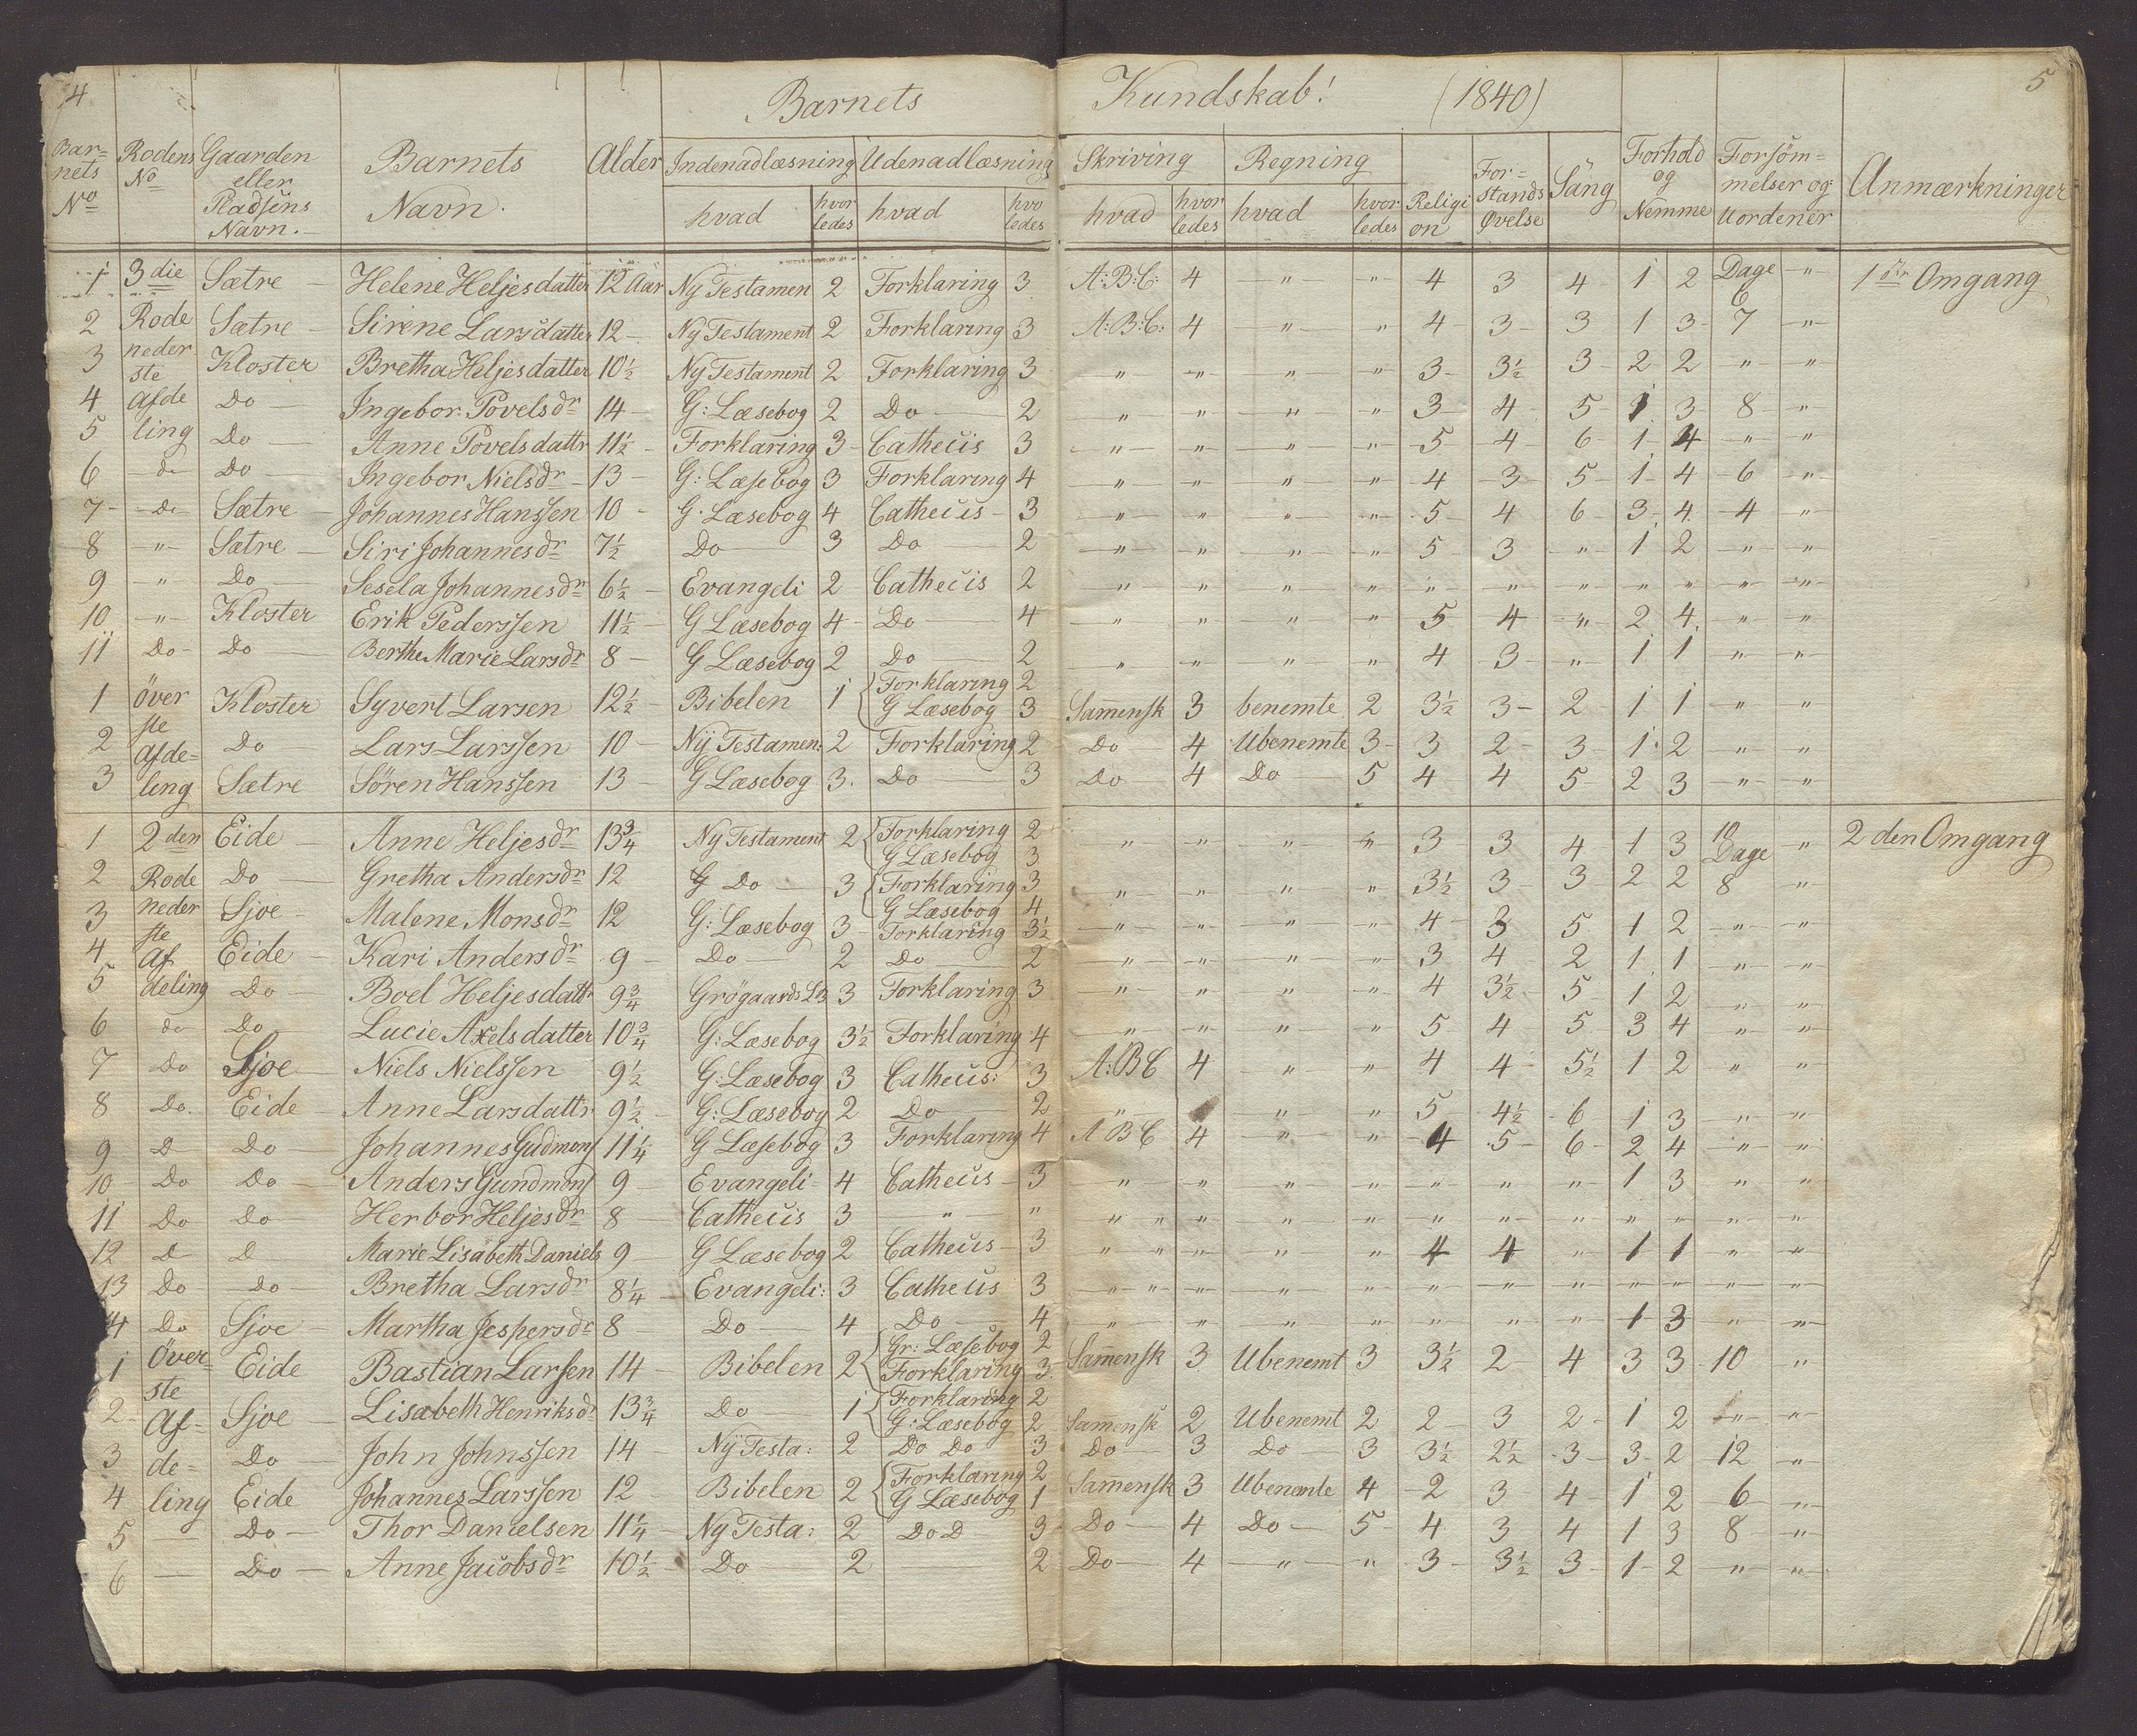 4 Barnets Kundskab! (1840) 5
Bar= nets No Rodens No Gaarden eller Pladsens Navn. Barnets Navn. Alder Indenadlæsning Udenadlæsning Skriving Regning Religi on For= stands Øvelse Sang Forhold og Nemme Forsöm= melser og Uordener Anmærkninger
hvad hvor ledes hvad hvo ledes hvad hvor ledes hvad hvor ledes
1 3die Sætre Helene Heljesdatter 12 Aar Ny Testamen 2 Forklaring 3 A:B:C: 4 " " 4 3 4 1 2 Dage 6 " 1ste Omgang
2 Rode Sætre Sirene Larsdatter 12 Ny Testament 2 Forklaring 3 A:B:C: 4 " " 4 3 3 1 3 7 "
3 neder ste Kloster Bretha Heljesdatter 10½ Ny Testament 2 Forklaring 3 " " " " 3 3½ 3 2 2 " "
4 afde Do Ingebor Povelsdr 14 G: Læsebog 2 Do 2 " " " " 3 4 5 1 3 8 "
5 ling Do Anne Povelsdattr 11½ Forklaring 3 Catheüs 3 " " " " 5 4 6 1 4 " "
6 do Do Ingebor Nielsdr 13 G: Læsebog 3 Forklaring 4 " " " " 4 3 5 1 4 6 "
7 do Sætre Johannes Hanssen 10 G. Læsebog 4 Catheüs 3 " " " " 5 4 6 3 4 4 "
8 " Sætre Siri Johannesdr 7½ Do 3 Do 2 " " " " 5 3 " 1 2 " "
9 " Do Sesela Johannesdr 6½ Evangeli 2 Catheüs 2 " " " " " " " " " " "
10 " Kloster Erik Pederssen 11½ G Læsebog 4 Do 4 " " " " 5 4 " 2 4 " "
11 Do Do Berthe Marie Larsdr 8 G Læsebog 2 Do 2 " " " " 4 3 " 1 1 " "
1 över ste Kloster Syvert Larsen 12½ Bibelen 1 { Forklaring 2 G Læsebog 3 Samensk 3 benemte 2 3½ 3 2 1 1 " "
2 afde= Do Lars Larssen 10 Ny Testamen: 2 Forklaring 2 Do 4 Ubenemte 3 3 2 3 1 2 " "
3 ling Sætre Sören Hanssen 13 G Læsebog 3 Do 3 Do 4 Do 5 4 4 5 2 3 " "
1 2den Eide Anne Heljesdr 13¾ Ny Testament 2 { Forklaring 2 G Læsebog 3 " " " " 3 3 4 1 3 10 Dage " 2den Omgang
2 Rode Do Gretha Andersdr 12 G Do 3 { Forklaring 3 G Læsebog 4 " " " " 3½ 3 3 2 2 8 "
3 neder ste Sjoe Malene Monsdr 12 G: Læsebog 3 Forklaring 3½ " " " " 4 3 5 1 2 " "
4 Af Eide Kari Andersdr 9 Do 2 Do 2 " " " " 3 4 2 1 1 " "
5 deling Do Boel Heljesdattr 9¾ Grögaards LB 3 Forklaring 3 " " " " 4 3½ 5 1 2 " "
6 do Do Lucie Axelsdatter 10¾ G: Læsebog 3½ Forklaring 4 " " " " 5 4 5 3 4 " "
7 Do Sjoe Niels Nielssen 9½ G: Læsebog 3 Catheüs: 3 A:BC 4 " " 4 4 5½ 1 2 " "
8 Do. Eide Anne Larsdattr 9½ G: Læsebog 2 Do 2 " " " 5 4½ 6 1 3 " "
9 D Do Johannes Gudmons 11¼ G Læsebog 3 Forklaring 4 A BC 4 " " 4 5 6 2 4 " "
10 Do Do Anders Gundmons 9 Evangeli 4 Catheüs 3 " " " " " " " 1 3 " "
11 Do Do Herbor Heljesdr 8 Catheüs 3 " " " " " " " " " " " " " "
12 D D Marie Lisabeth Daniels 9 G Læsebog 2 Catheüs 3 " " " " " 4 4 " 1 1 " "
13 Do Do Bretha Larsdr 8¼ Evangeli: 3 Catheüs 3 " " " " " " " " " " " "
4 Do Sjoe Martha Jespersdr 8 Do 4 Do 4 " " " " " " " 1 3 " "
1 Över= ste Eide Bastian Larsen 14 Bibelen 2 { Gr: Læsebog 2 Forklaring 3 Samensk 3 Ubenemt 3 3½ 2 4 3 3 10 "
2 Af= Sjoe Lisabeth Henriksdr 13¾ Do 1 { Forklaring 2 G: Læsebog 2 Samensk 2 Ubenemt 2 2 3 2 1 2 " "
3 de= Do John Johnssen 14 Ny Testa: 2 Do Do 3 Do 3 Do 3 3½ 2½ 3 3 2 12 "
4 ling Eide Johannes Larssen 12 Bibelen 2 { Forklaring 2 G Læsebog 1 Samensk 3 Ubenemte 4 2 3 4 1 2 6 "
5 Do Thor Danielsen 11¼ Ny Testa: 2 Do D 3 Do 4 Do 5 4 3 4 1 3 8 "
6 Do Anne Jacobsdr 10½ Do 2 2 Do 4 " " 3 3½ 3 1 2 " "